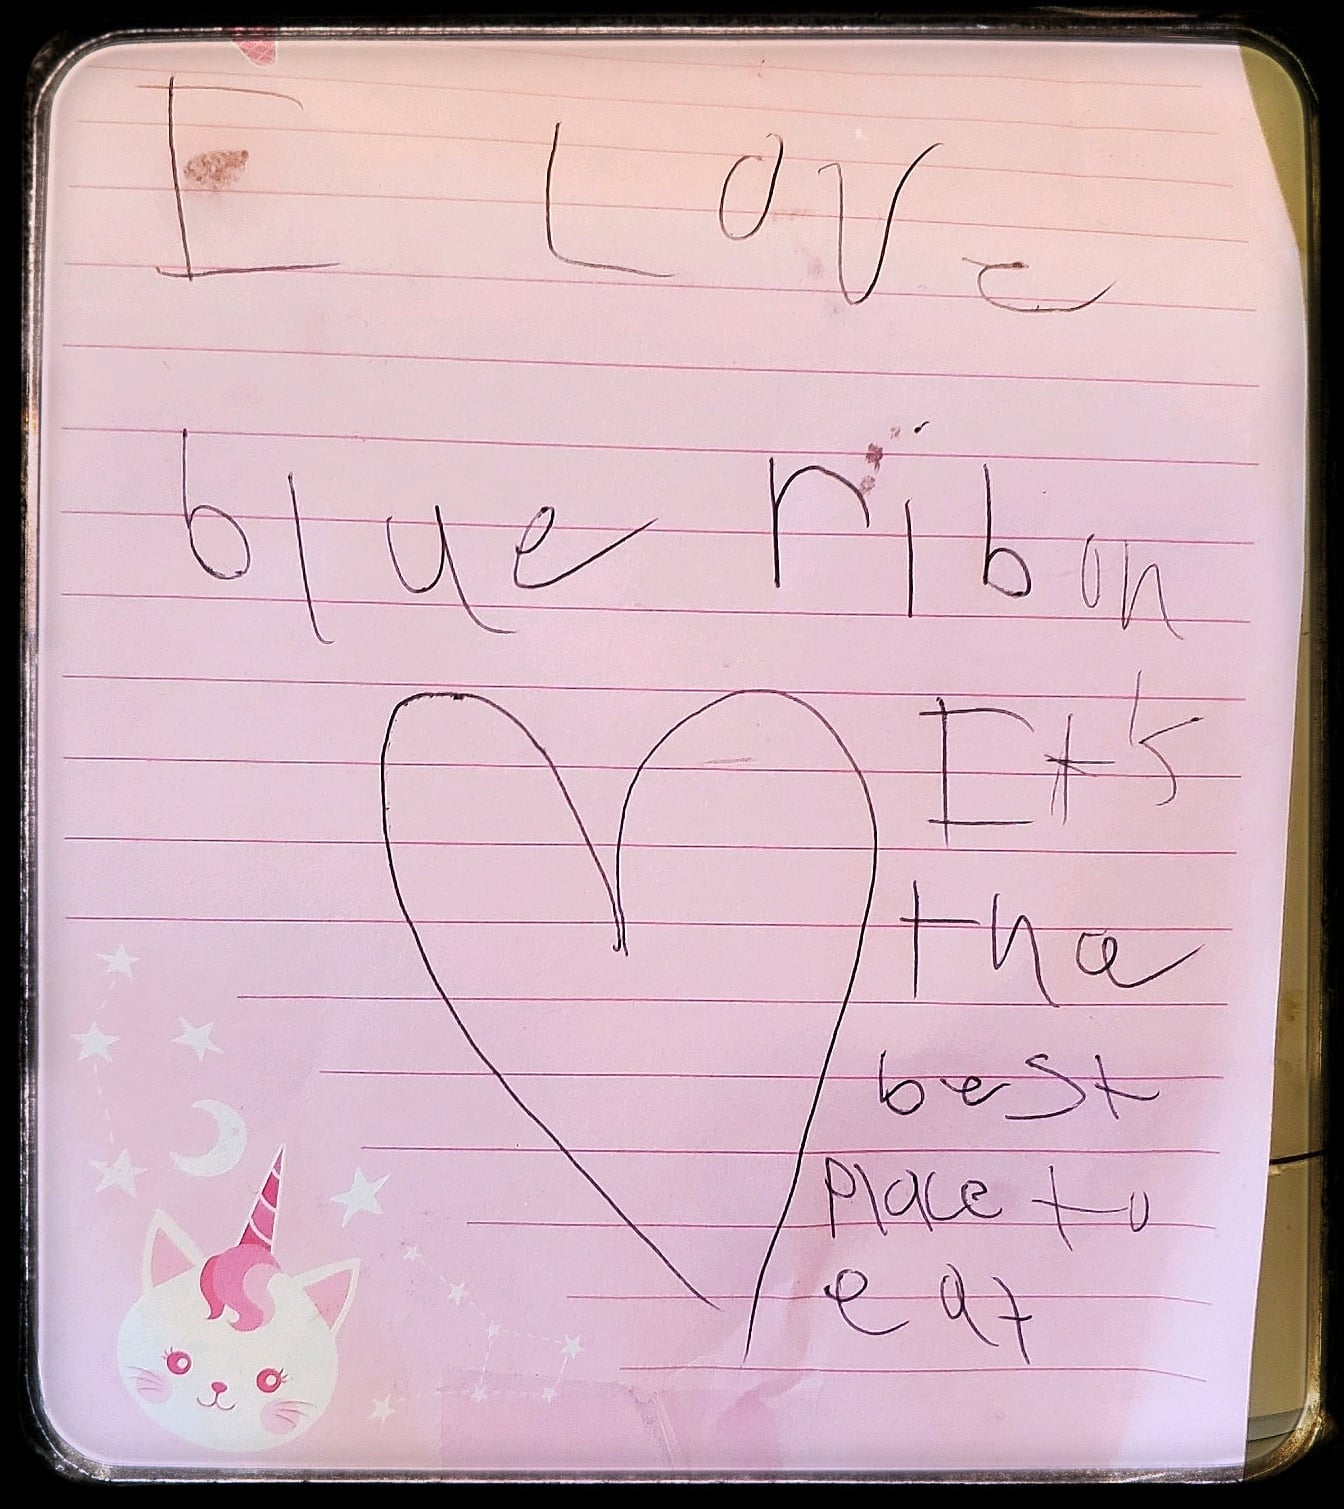 I Love
blue ribon
It's
the
best
Place to
eat